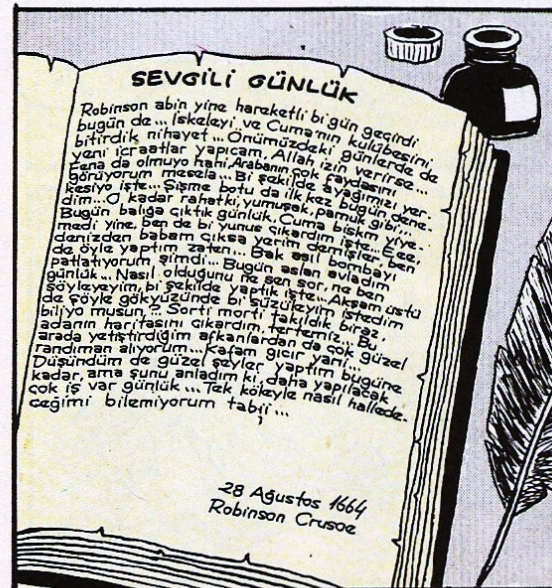 SEVGİLİ GÜNLÜK
Robinson abin yine hareketli bi gün geçirdi
bugün de... İskeleyi ve Cuma'nın kulübesini
bitirdik nihayet... Önümüzdeki günlerde de
yeni icraatlar yapıcam, Allah izin verirse...
Fena da olmuyo hani, Arabanın çok faydasını
görüyorum mesela... Bi şekilde ayağımızı yer.
kesiyo işte... Şişme botu da ilk kez bugün dene.
dim... O kadar rahatki, yumuşak, pamuk gibi...
Bugün balığa çıktık günlük. Cuma bişim yiye.
medi yine, ben de bi yunus çıkardım işte... Eee,
denizden babam çıksa yerim demişler, ben
de öyle yaptım zaten... Bak asıl bombayı
patlatıyorum şimdi... Bugün aslan avladım
günlük... Nasıl olduğunu ne sen sor, ne ben
söyleyeyim, bi şekilde yaptık işte... Akşam üstü
de şöyle gökyüzünde bi süzüleyim istedim
biliyo musun,? Sorti morti takıldık biraz,
adanın haritasını çıkardım, tertemiz... Bu
arada yetiştirdiğim afkanlardan da çok güzel
randıman alıyorum... Kafam gıcır yani...
Düşündüm de güzel şeyler yaptım bugüne
kadar, ama şunu anladım ki, daha yapılacak
çok iş var günlük... Tek köleyle nasıl hallede.
ceğimi bilemiyorum tabii...
28 Ağustos 1664
Robinson Crusoe